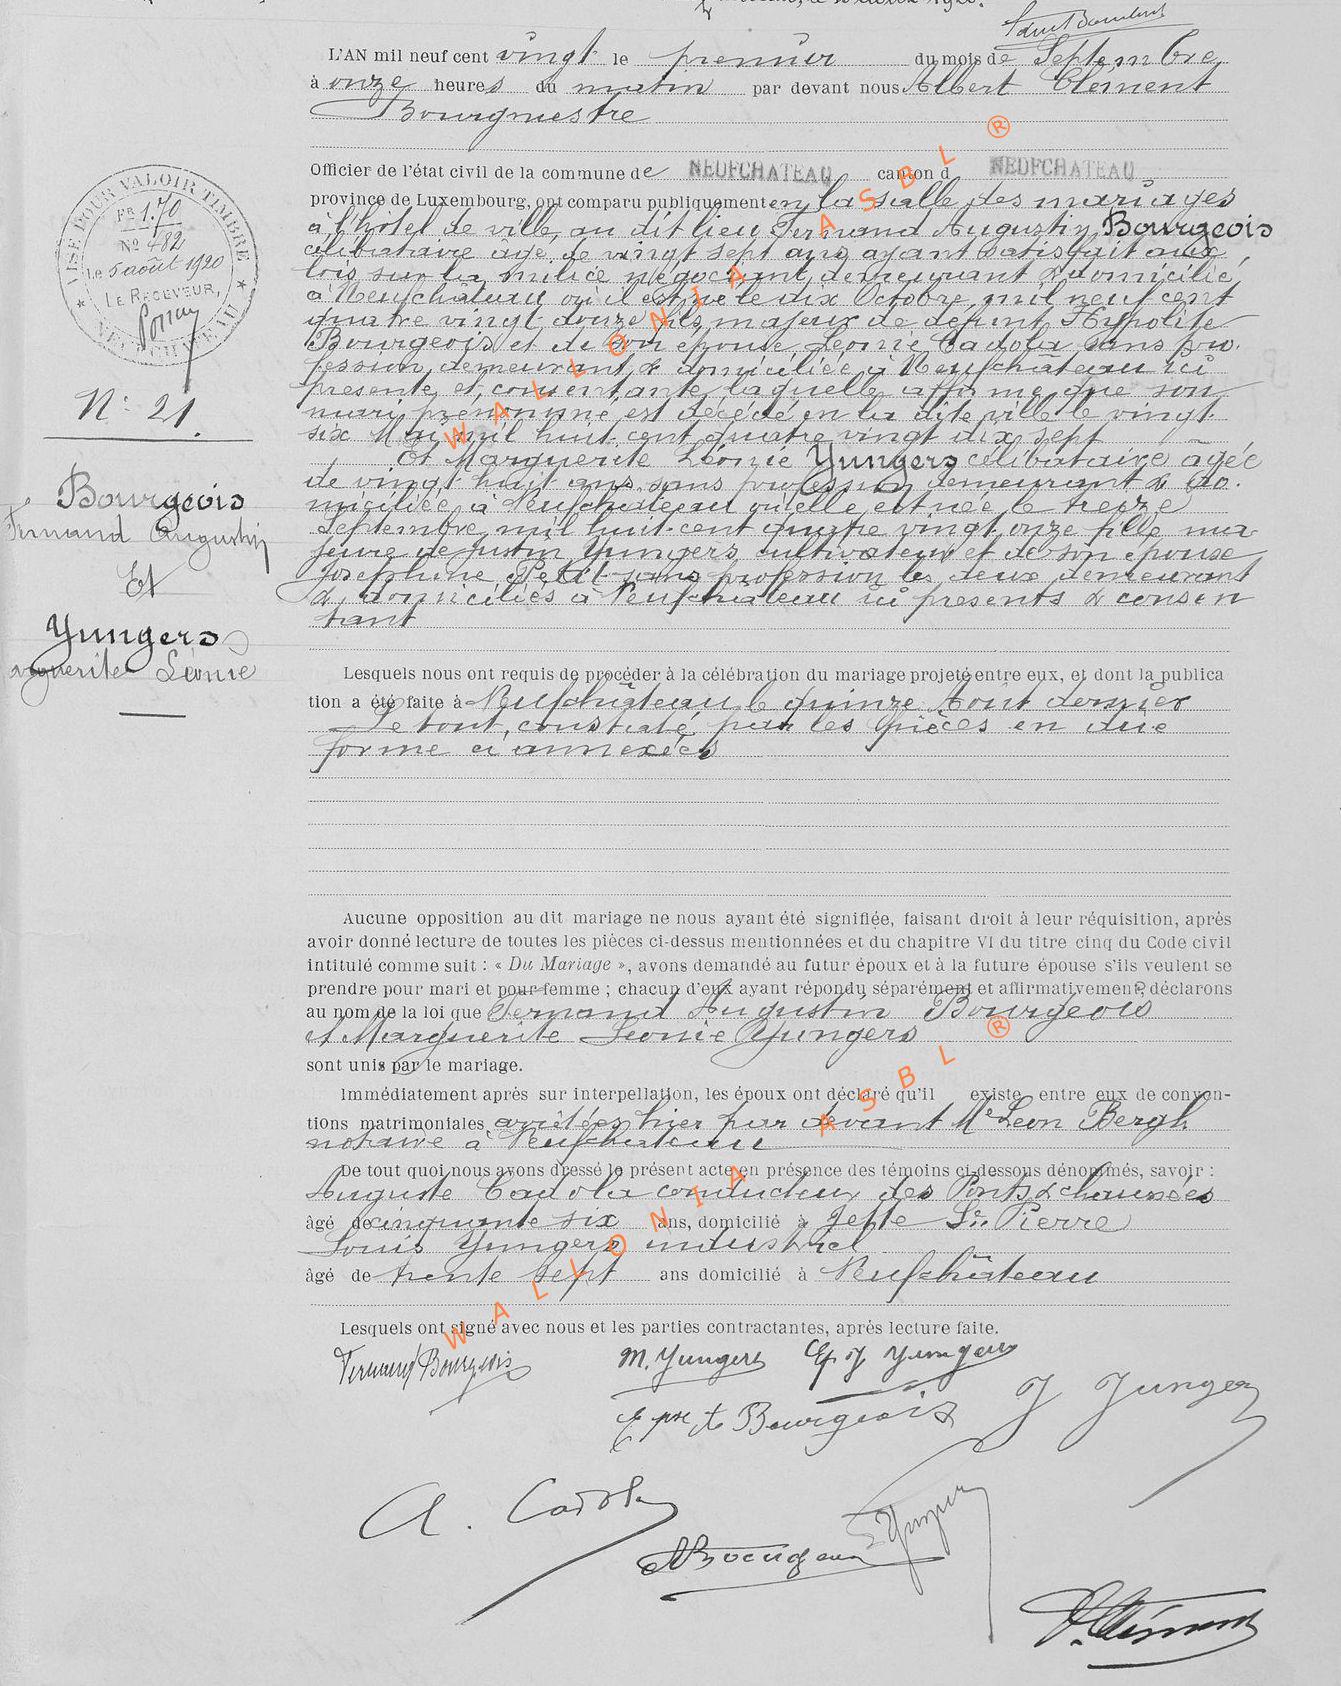 L'AN mil neuf cent vingt le premier du mois de Septembre
à onze heures du matin par devant nous Albert Clément
Bourgmestre
Officier de l'état civil de la commune de NEUFCHATEAU canton d NEUFCHATEAU
province de Luxembourg, ont comparu publiquement en la salle des mariages
à l'hôtel de ville, au dit lieu Fernand Augustin Bourgeois
célibataire âgé de vingt sept ans ayant satisfait aux
lois sur la milice négociant, demeurant & domicilié
à Neufchâteau où il est né le dix Octobre mil neuf cent
quatre vingt douze fils majeur de défunt Hypolite
Bourgeois et de son épouse Léonie Cadola sans pro-
fession, demeurant & domiciliée à Neufchâteau ici
présente et consentante laquelle affirme que son
mari prénommé est décédé en la dite ville le vingt
six Mai mil huit cent quatre vingt dix sept
Et Marguerite Léonie Yungers célibataire âgée
de vingt huit ans sans profession demeurant & do-
miciliée à Neufchâteau où elle est née le treize
Septembre mil huit cent quatre vingt onze fille ma-
jeure de Justin Yungers cultivateur et de son épouse
Joséphine Petit sans profession les deux demeurant
& domiciliés à Neufchâteau ici présents & consen
tant
Lesquels nous ont requis de procéder à la célébration du mariage projeté entre eux, et dont la publica
tion a été faite à Neufchâteau le quinze Août dernier
Le tout constaté par les pièces en due
forme ci annexées
Aucune opposition au dit mariage ne nous ayant été signifiée, faisant droit à leur réquisition, après
avoir donné lecture de toutes les pièces ci-dessus mentionnées et du chapitre VI du titre cinq du Code civil
intitulé comme suit : « Du Mariage », avons demandé au futur époux et à la future épouse s'ils veulent se
prendre pour mari et pour femme ; chacun d'eux ayant répondu séparément et affirmativement, déclarons
au nom de la loi que Fernand Augustin Bourgeois
et Marguerite Léonie Yungers
sont unis par le mariage.
Immédiatement après sur interpellation, les époux ont déclaré qu'il existe entre eux de conven-
tions matrimoniales arrêtées hier par devant Me Léon Bergh
notaire à Neufchâteau
De tout quoi nous avons dressé le présent acte en présence des témoins ci-dessous dénommés, savoir :
Auguste Cadola conducteur des Ponts & chaussées
âgé de cinquante six ans, domicilié à Jette St. Pierre
Louis Yungers industriel
âgé de trente sept ans domicilié à Neufchâteau
Lesquels ont signé avec nous et les parties contractantes, après lecture faite.
Fernand Bourgeois M. Yungers Ep J Yungers
Bourgeois J Yungers
A. Cadola
Bourgeois Yungers
A. Clément
VISÉ POUR VALOIR TIMBRE
FR 1.70
No 482
Le 5 août 1920
LE RECEVEUR,
NEUFCHATEAU
No 21.
Bourgeois
Fernand Augustin
Et
Yungers
arguerite Léonie
WALLONIA ASBL ®
WALLONIA ASBL ®